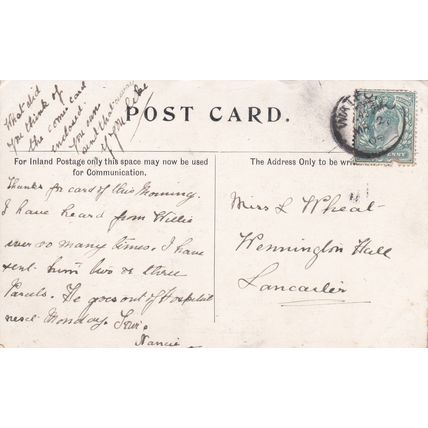 What did
you think of
the comic card
enclosed
you can
send that away
if you like
POST CARD.
For Inland Postage only this space may now be used
for Communication.
The Address Only to be wri
WATFO
NNY
Thanks for card of this Morning.
I have heard from Willie
ever so many times. I have
sent him two or three
Parcels. He goes out of Hospital
next Monday.
Nancie
Miss L Wheat
Wennington Hall
Lancaster